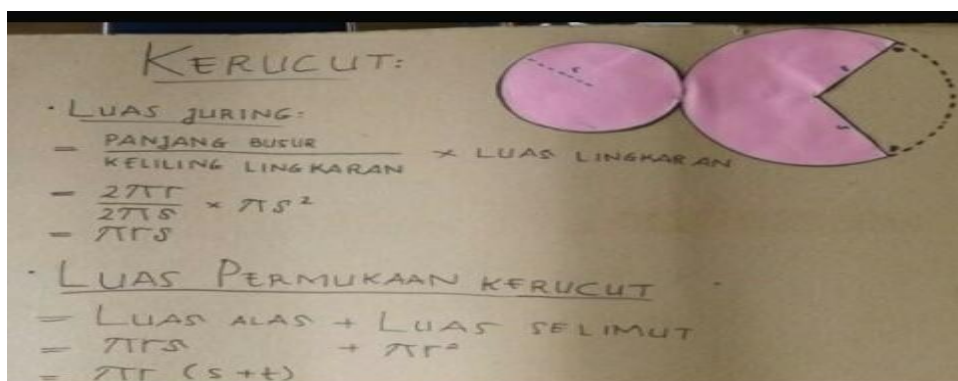 KERUCUT:
r
s
s
· LUAS JURING:
= PANJANG BUSUR / KELILING LINGKARAN × LUAS LINGKARAN
= 2πr / 2πs × πs²
= πrs
· LUAS PERMUKAAN KERUCUT
= LUAS ALAS + LUAS SELIMUT
= πrs + πr²
= πr (s+t)